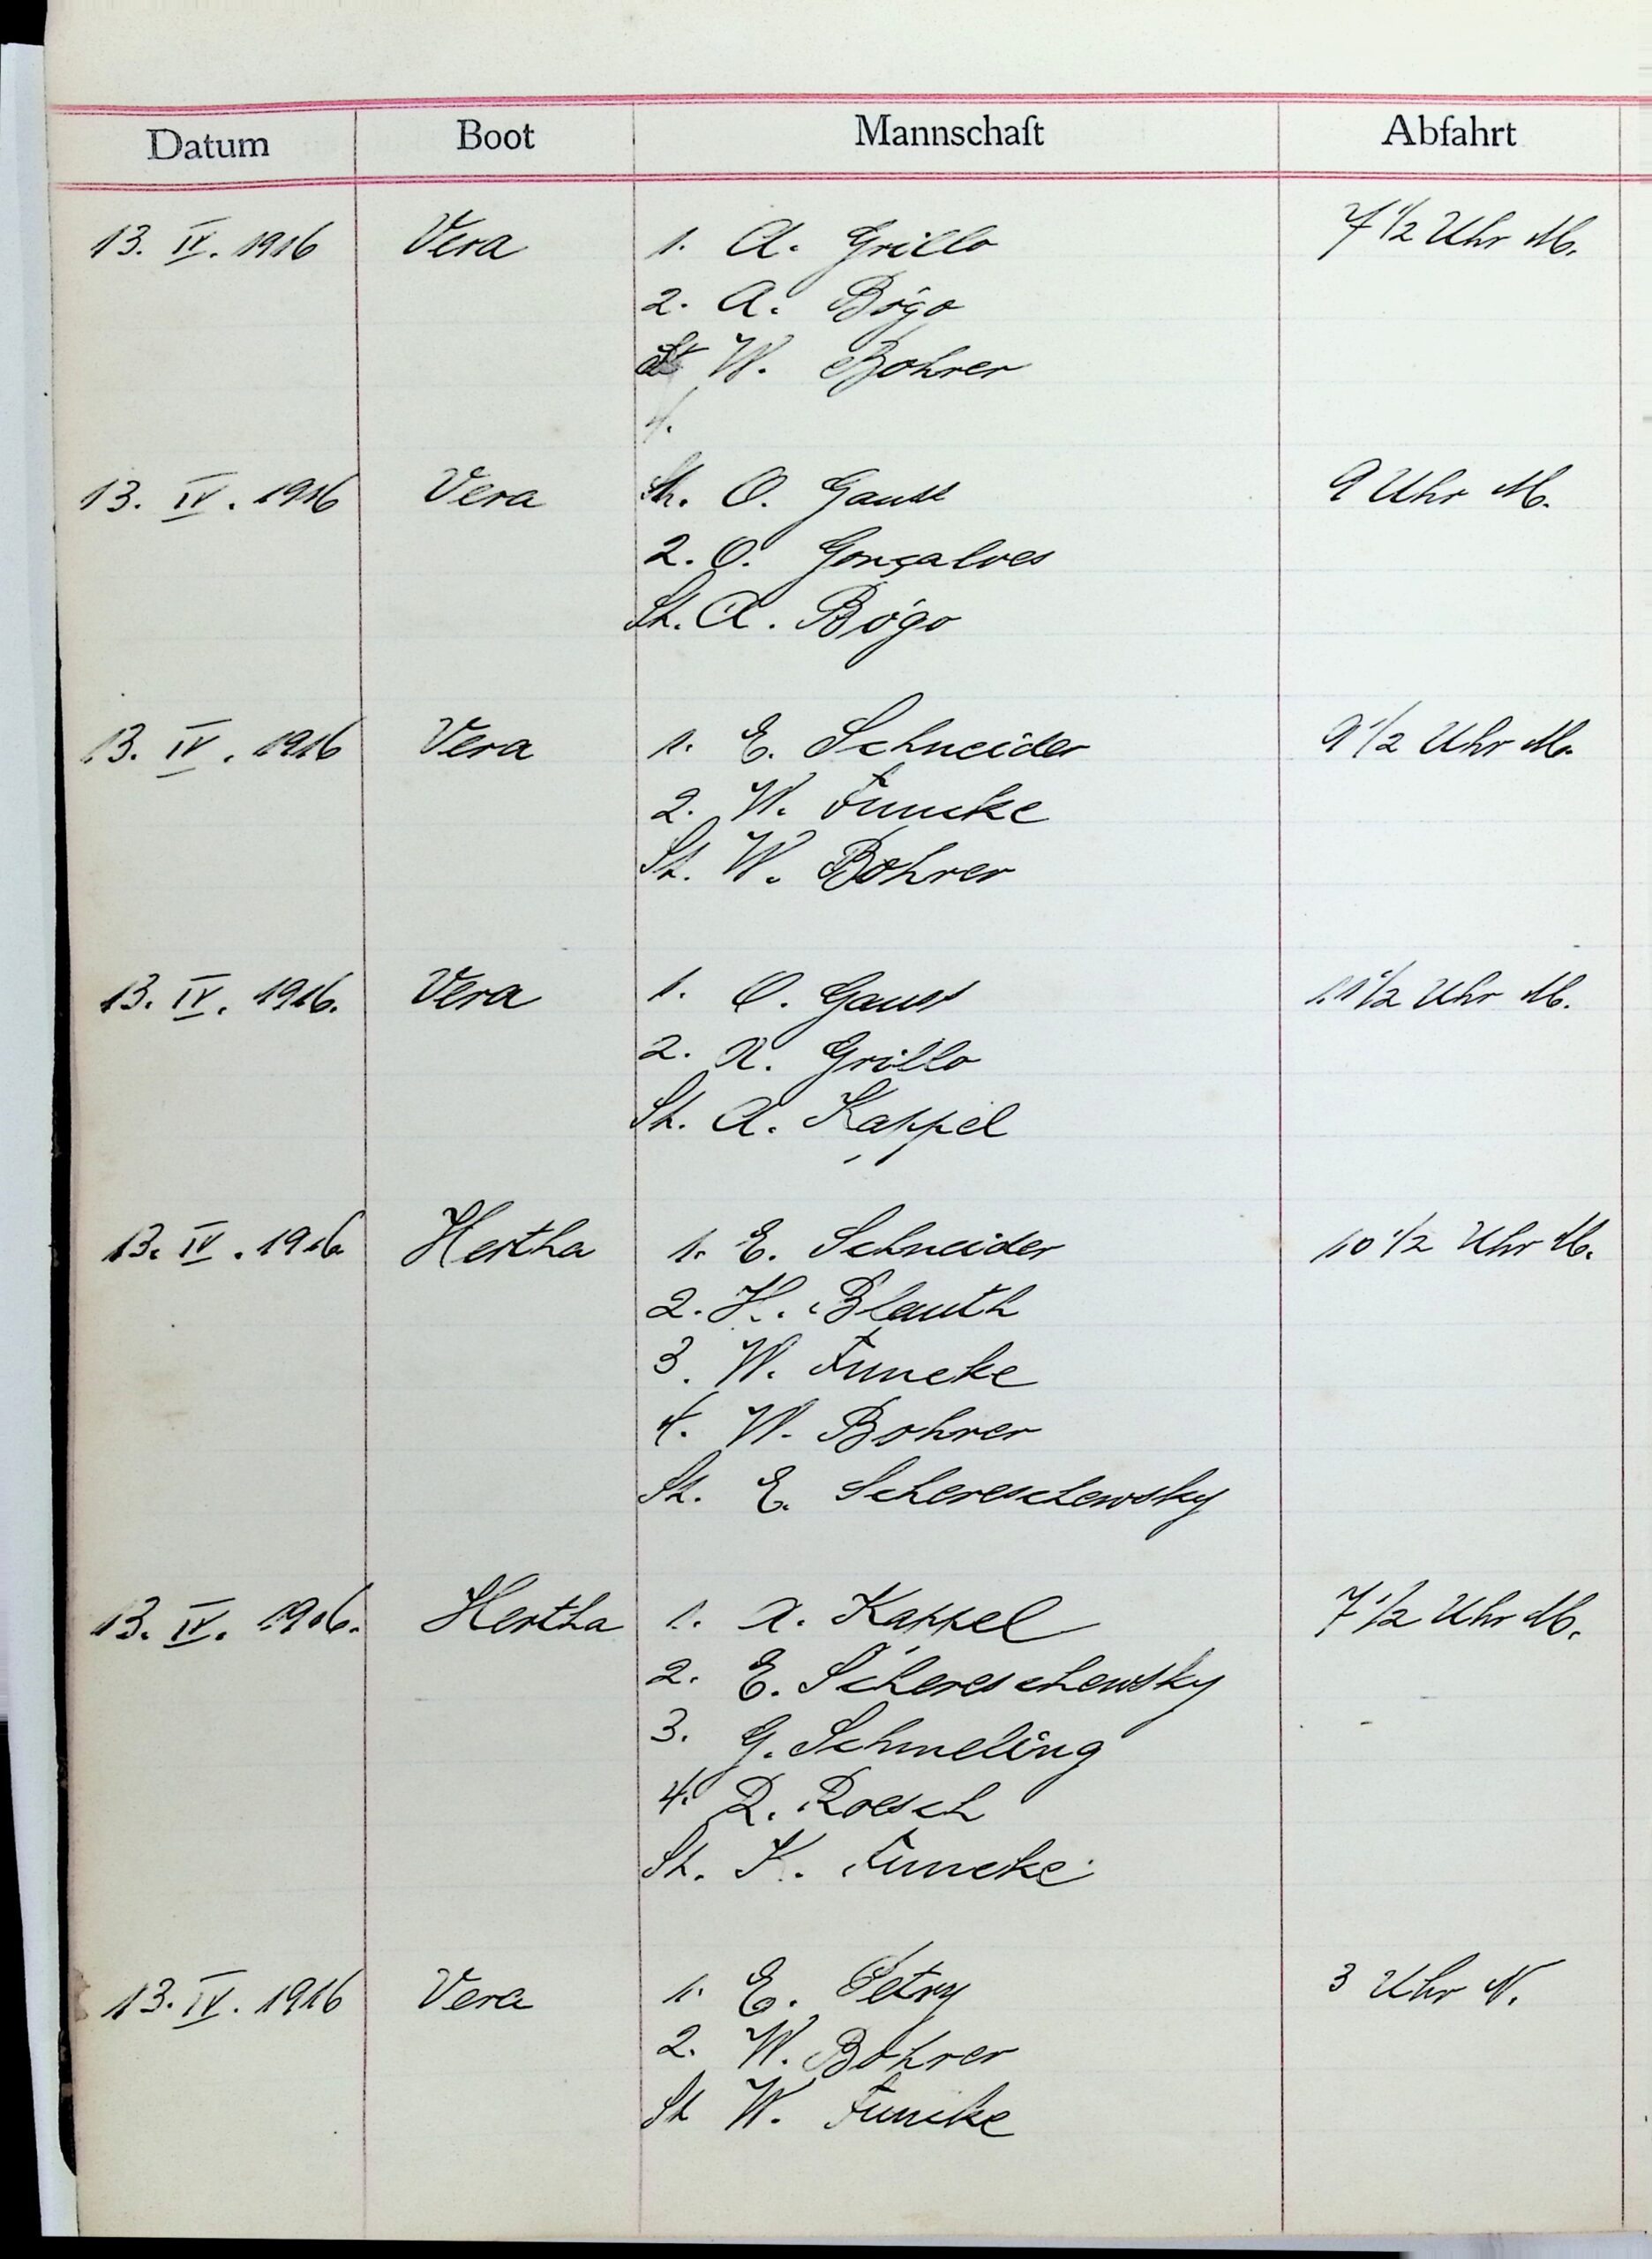 Datum Boot Mannschaft Abfahrt
13. IV. 1916 Vera 1. A. Grillo 7 1/2 Uhr M.
2. A. Bögo
St W. Bohrer
4.
13. IV. 1916 Vera St. O. Gauss 9 Uhr M.
2. O. Gonçalves
St. A. Bögo
13. IV. 1916 Vera 1. E. Schneider 9 1/2 Uhr M.
2. W. Funcke
St. W. Bohrer
13. IV. 1916. Vera 1. O. Gauss 11 1/2 Uhr M.
2. A. Grillo
St. A. Kappel
13. IV. 1916 Hertha 1. E. Schneider 10 1/2 Uhr M.
2. H. Blauth
3. W. Funcke
4. W. Bohrer
St. E. Schereschewsky
13. IV. 1916. Hertha 1. A. Kappel 7 1/2 Uhr M.
2. E. Schereschewsky
3. G. Schmeling
4. R. Roesch
St. K. Funcke
13. IV. 1916 Vera 1. E. Petry 3 Uhr N.
2. W. Bohrer
St W. Funcke